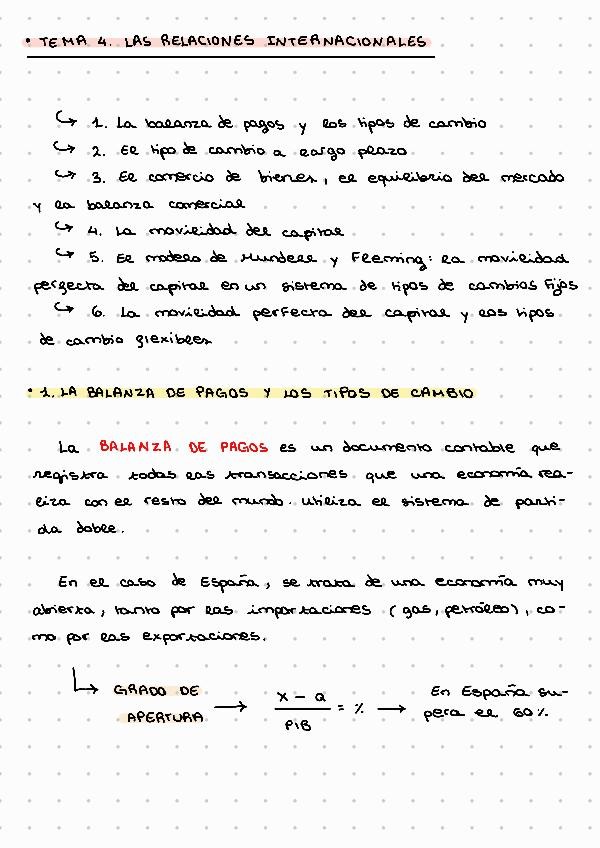 • TEMA 4. LAS RELACIONES INTERNACIONALES
↳ 1. La balanza de pagos y los tipos de cambio
↳ 2. El tipo de cambio a largo plazo
↳ 3. El comercio de bienes, el equilibrio del mercado
y la balanza comercial
↳ 4. La movilidad del capital
↳ 5. El modelo de Mundell y Fleming: la movilidad
perfecta del capital en un sistema de tipos de cambios fijos
↳ 6. La movilidad perfecta del capital y los tipos
de cambio flexibles
• 1. LA BALANZA DE PAGOS Y LOS TIPOS DE CAMBIO
La BALANZA DE PAGOS es un documento contable que
registra todas las transacciones que una economía rea-
liza con el resto del mundo. Utiliza el sistema de parti-
da doble.
En el caso de España, se trata de una economía muy
abierta, tanto por las importaciones (gas, petróleo), co-
mo por las exportaciones.
↳ GRADO DE APERTURA → X - Q / PIB = % → En España su-
pera el 60%